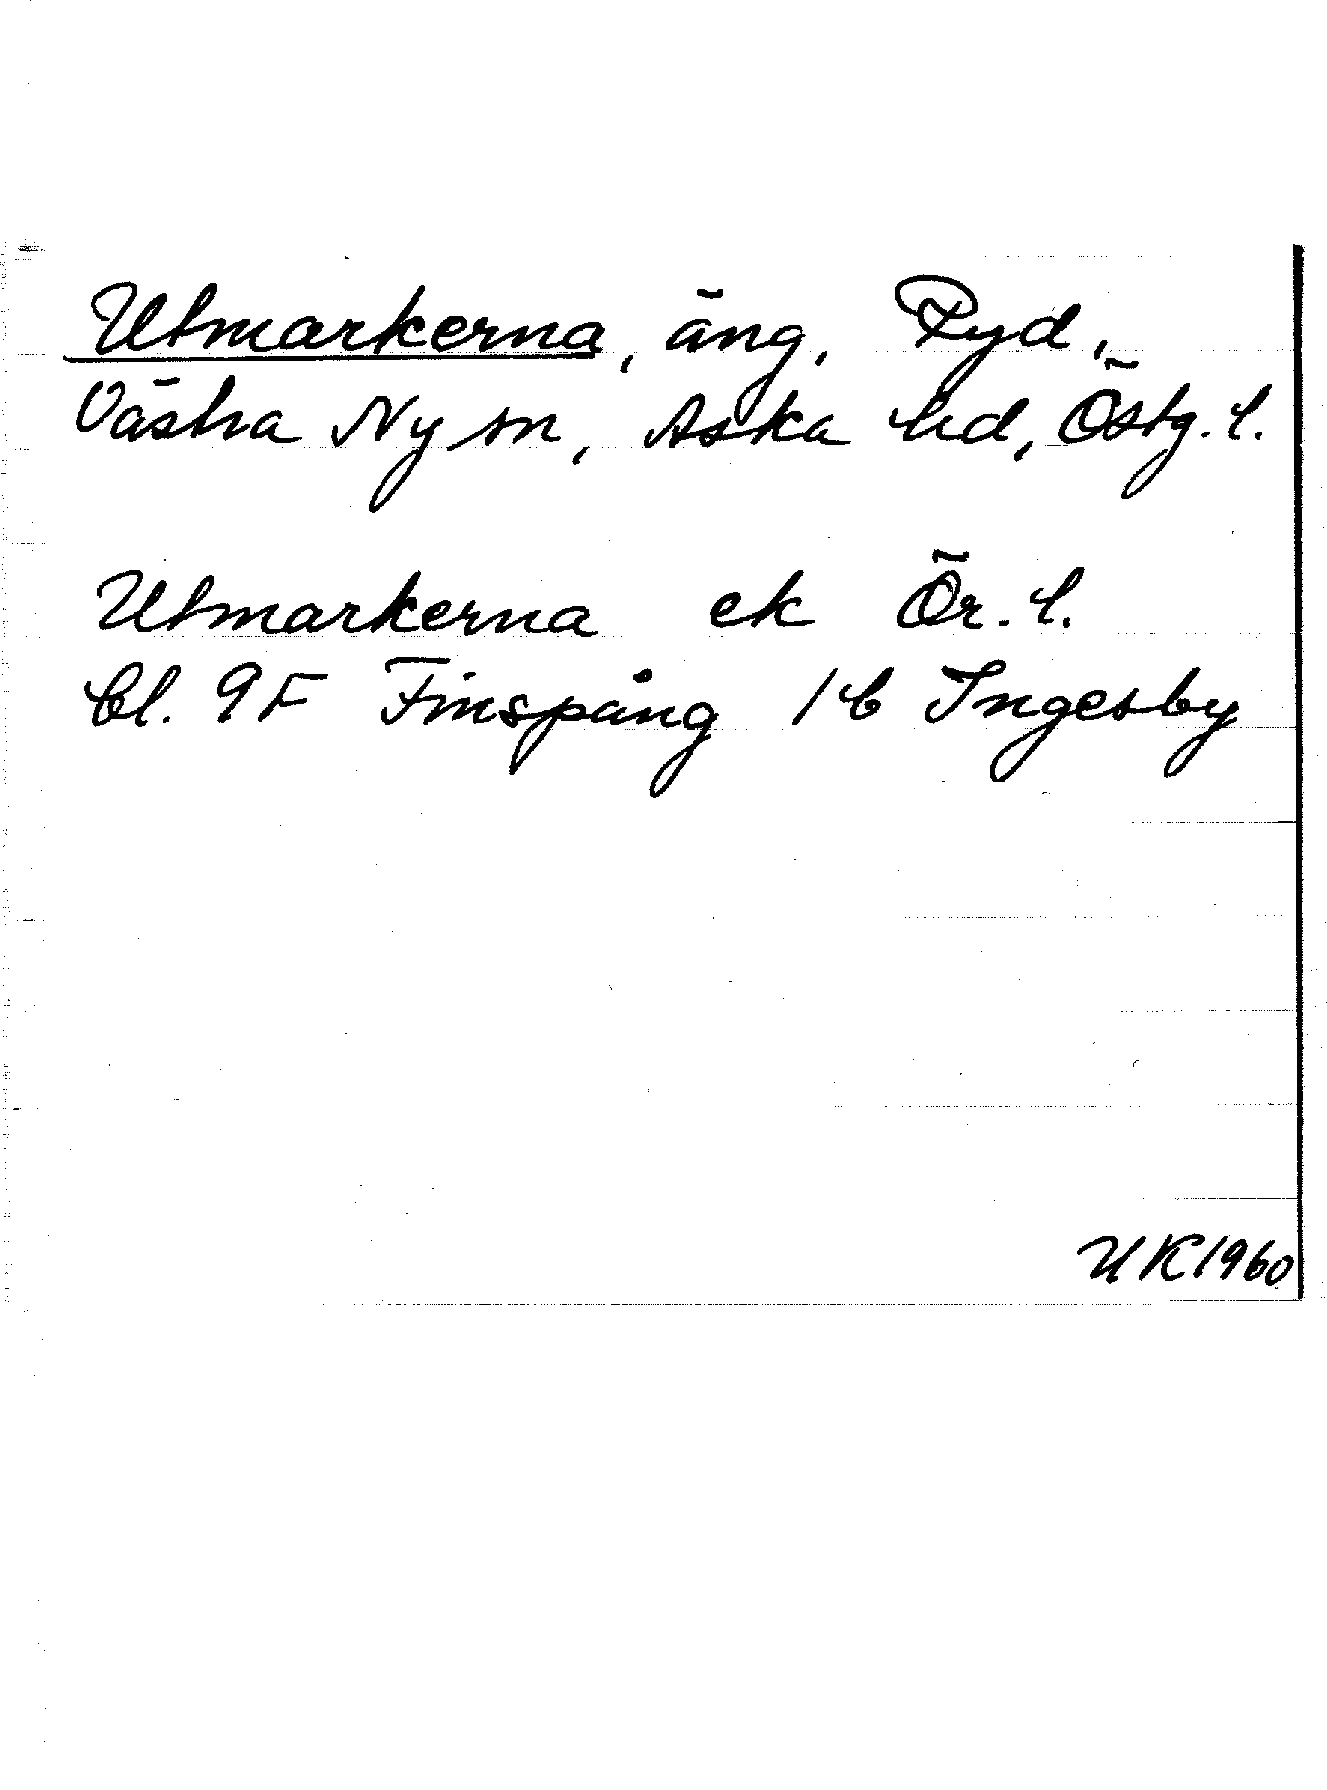 Utmarkerna, äng, Ryd,
Västra Ny sn, Aska hd, Östg. l.
Utmarkerna ek Ör. l.
bl. 9F Finspång 1b Ingesby
UK 1960